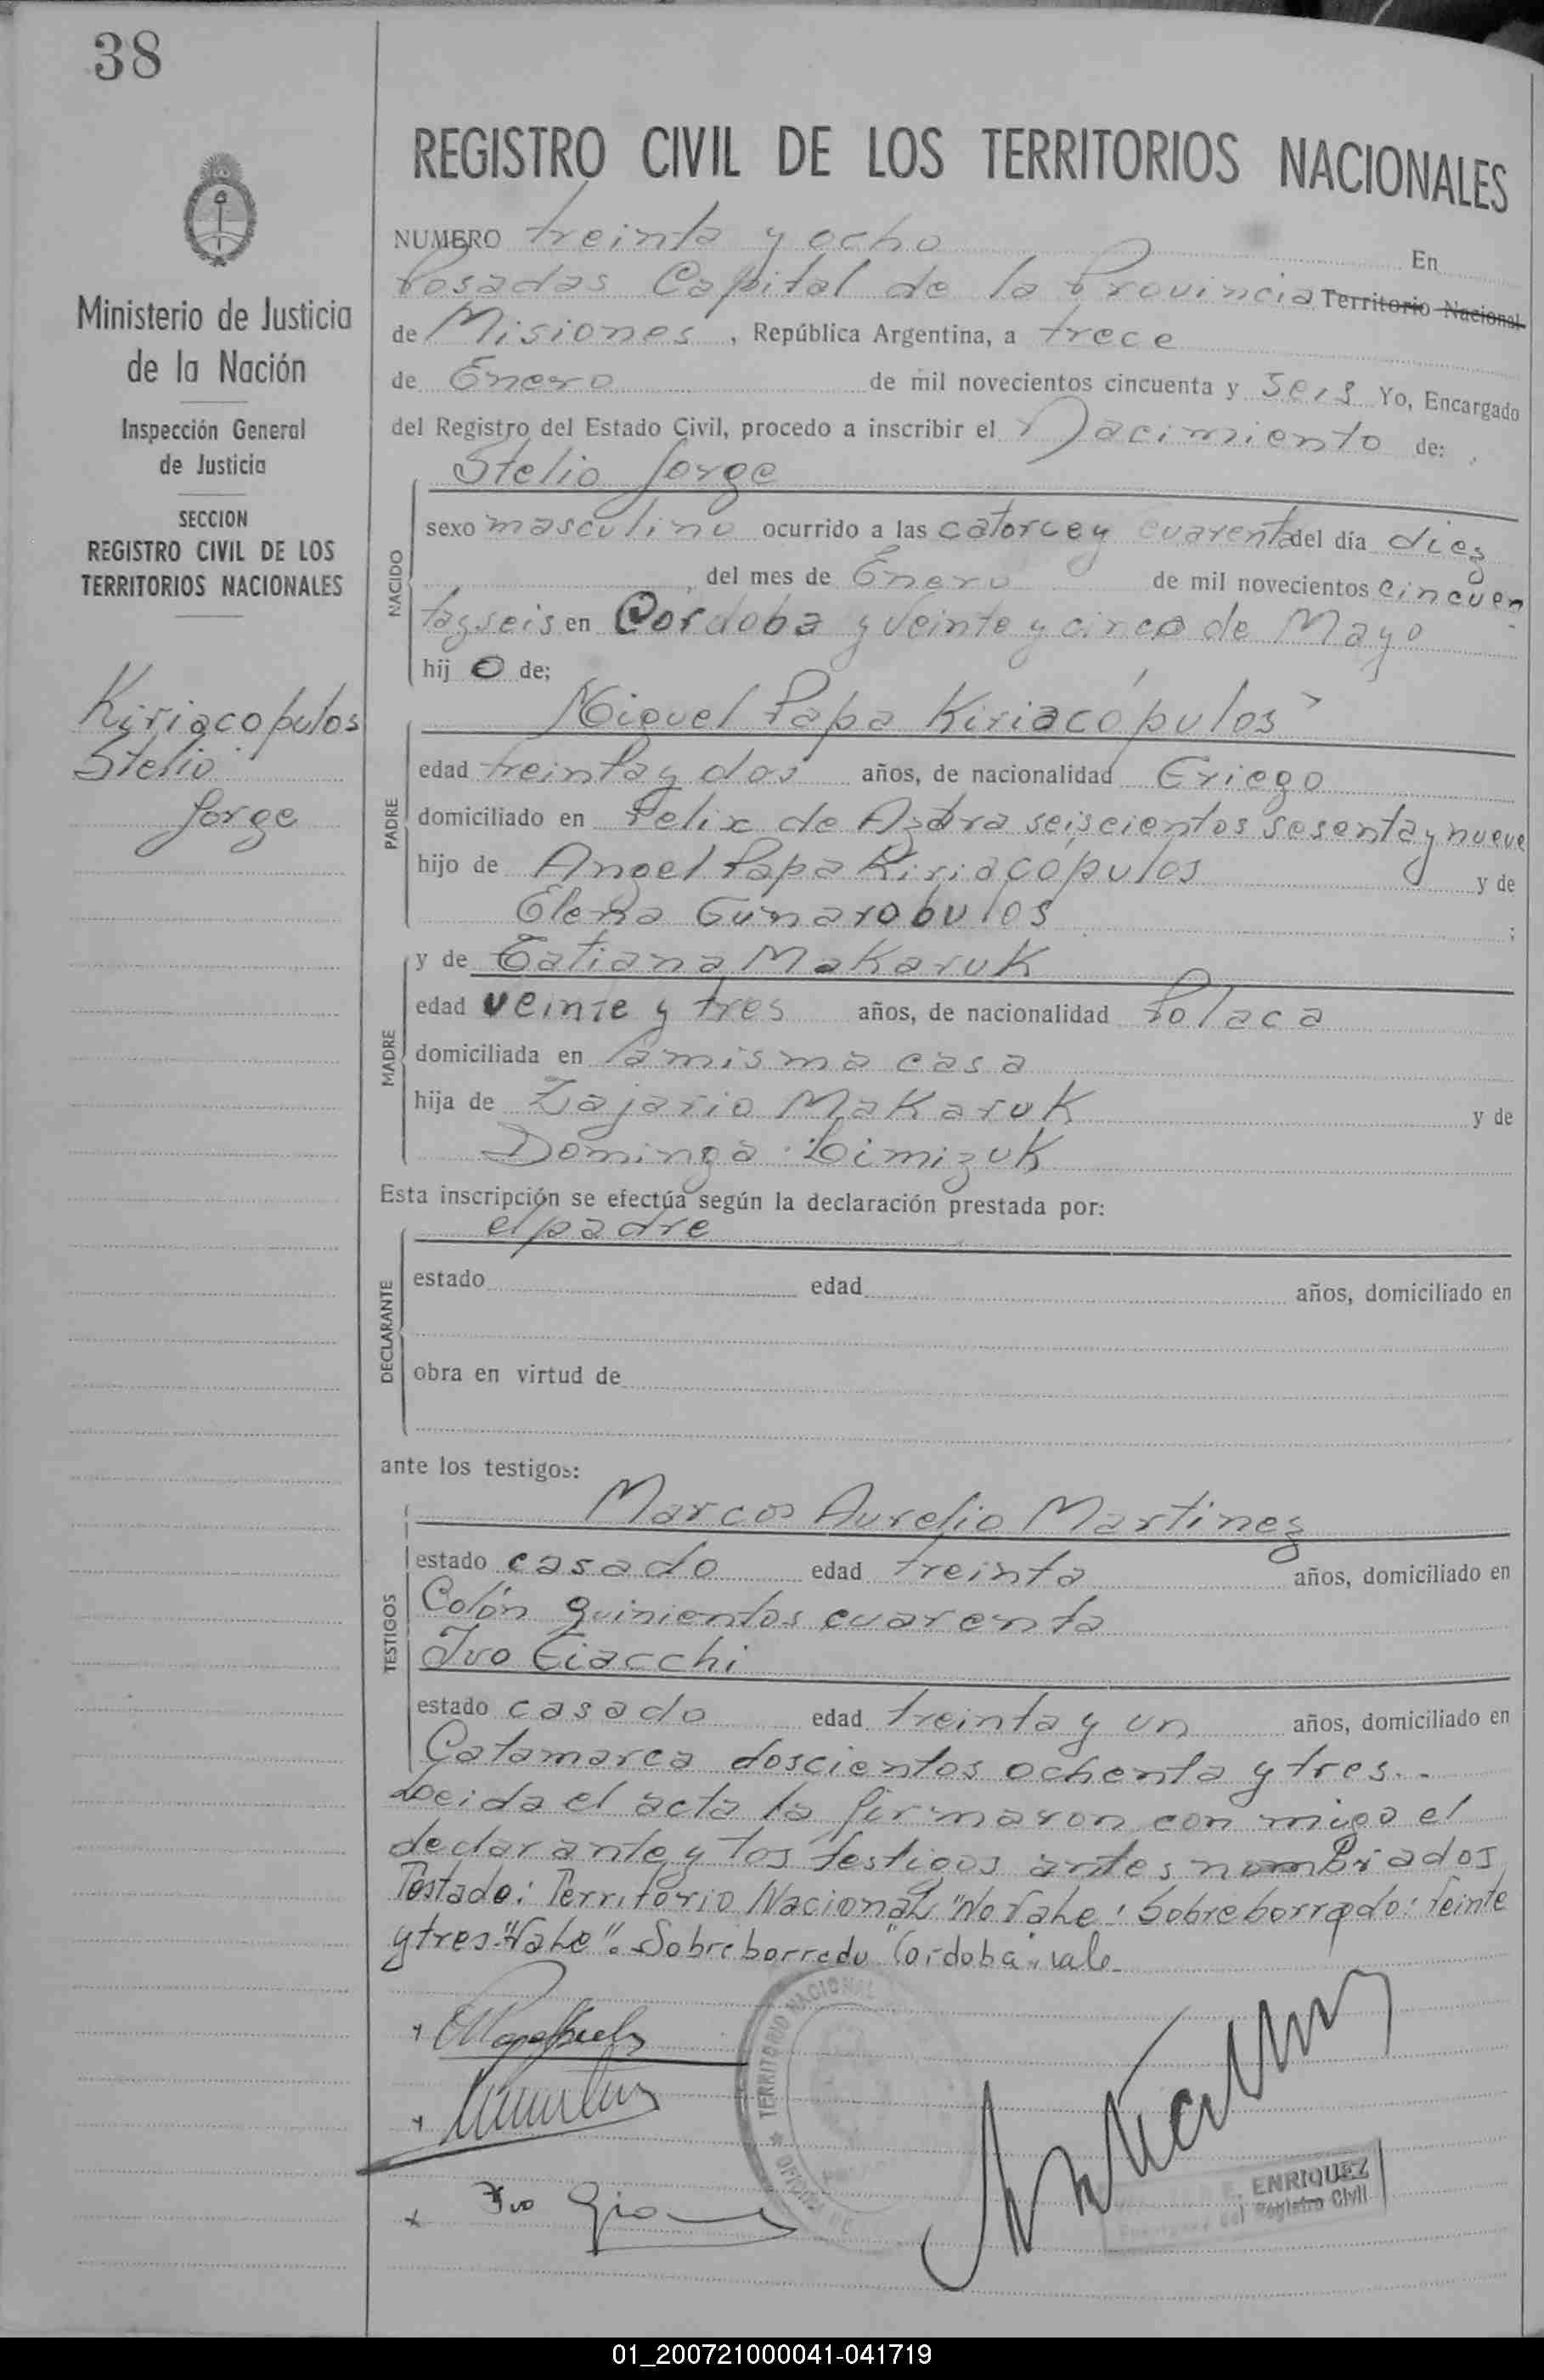 38
REGISTRO CIVIL DE LOS TERRITORIOS NACIONALES
Ministerio de Justicia
de la Nación
Inspección General
de Justicia
SECCION
REGISTRO CIVIL DE LOS
TERRITORIOS NACIONALES
Kiriacopulos
Stelio
Jorge
NUMERO treinta y ocho En
Posadas Capital de la Provincia Territorio Nacional
de Misiones, República Argentina, a trece
de Enero de mil novecientos cincuenta y seis Yo, Encargado
del Registro del Estado Civil, procedo a inscribir el Nacimiento de:
Stelio Jorge
NACIDO
sexo masculino ocurrido a las catorce y cuarenta del día diez
del mes de Enero de mil novecientos cincuen
ta y seis en Cordoba y veinte y cinco de Mayo
hijo de;
Miguel Papa Kiriacópulos
PADRE
edad treinta y dos años, de nacionalidad Griego
domiciliado en Felix de Azara seiscientos sesenta y nueve
hijo de Angel Papa Kiriacópulos y de
Elena Gunarobulos ;
y de Tatiana Makaruk
MADRE
edad veinte y tres años, de nacionalidad Polaca
domiciliada en la misma casa
hija de Zajario Makaruk y de
Dominga Limizuk
Esta inscripción se efectúa según la declaración prestada por:
el padre
DECLARANTE
estado edad años, domiciliado en
obra en virtud de
ante los testigos:
Marcos Aurelio Martinez
TESTIGOS
estado casado edad treinta años, domiciliado en
Colón quinientos cuarenta
Ivo Giacchi
estado casado edad treinta y un años, domiciliado en
Catamarca doscientos ochenta y tres..
Leida el acta la firmaron con migo el
declarante y los testigos antes nombrados
Testado: Territorio Nacional "No Vale" Sobreborrado: Veinte
y tres "Vale". Sobreborrado "Cordoba" vale
TERRITORIO NACIONAL
Ivo
E. ENRIQUEZ
del Registro Civil
01_200721000041-041719